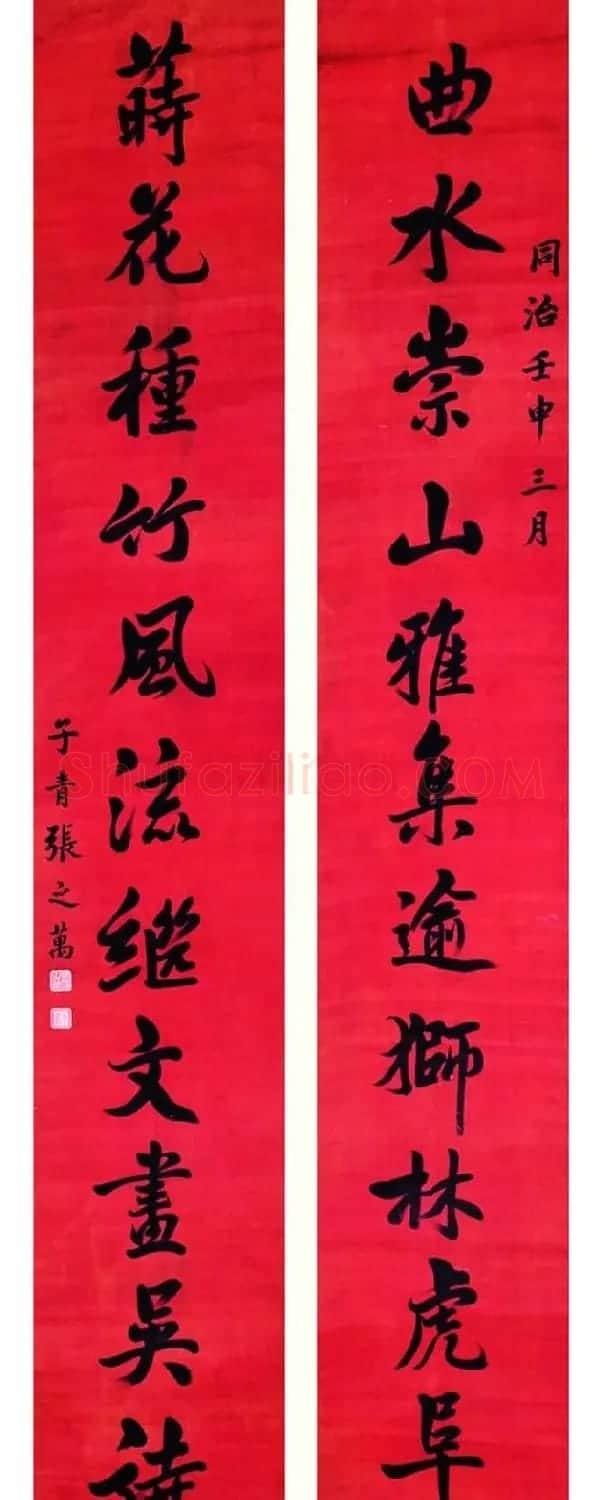 同治壬申三月
曲水崇山雅集逾獅林虎阜
蒔花種竹風流繼文畫吳詩
子青張之萬
Shufaziliao.COM